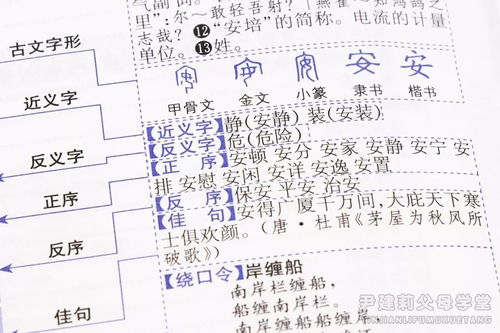 里"：尔～敢轻吾射？
志哉？⓬"安培"的简称。电流的计量
单位。⓭姓。
古文字形
甲骨文 金文 小篆 隶书 楷书
近义字
【近义字】静（安静）装（安装）
反义字
【反义字】危（危险）
【正 序】安顿 安分 安家 安静 安宁 安
排 安慰 安闲 安详 安逸 安置
正序
【反 序】保安 平安 治安
反序
【佳 句】安得广厦千万间，大庇天下寒
士俱欢颜。（唐·杜甫《茅屋为秋风所
破歌》）
佳句
【绕口令】岸缠船
南岸栏缠船，
船缠南岸栏。
南岸船栏缠船缠
尹建莉父母学堂
YINJIANLIFUMUXUETANG